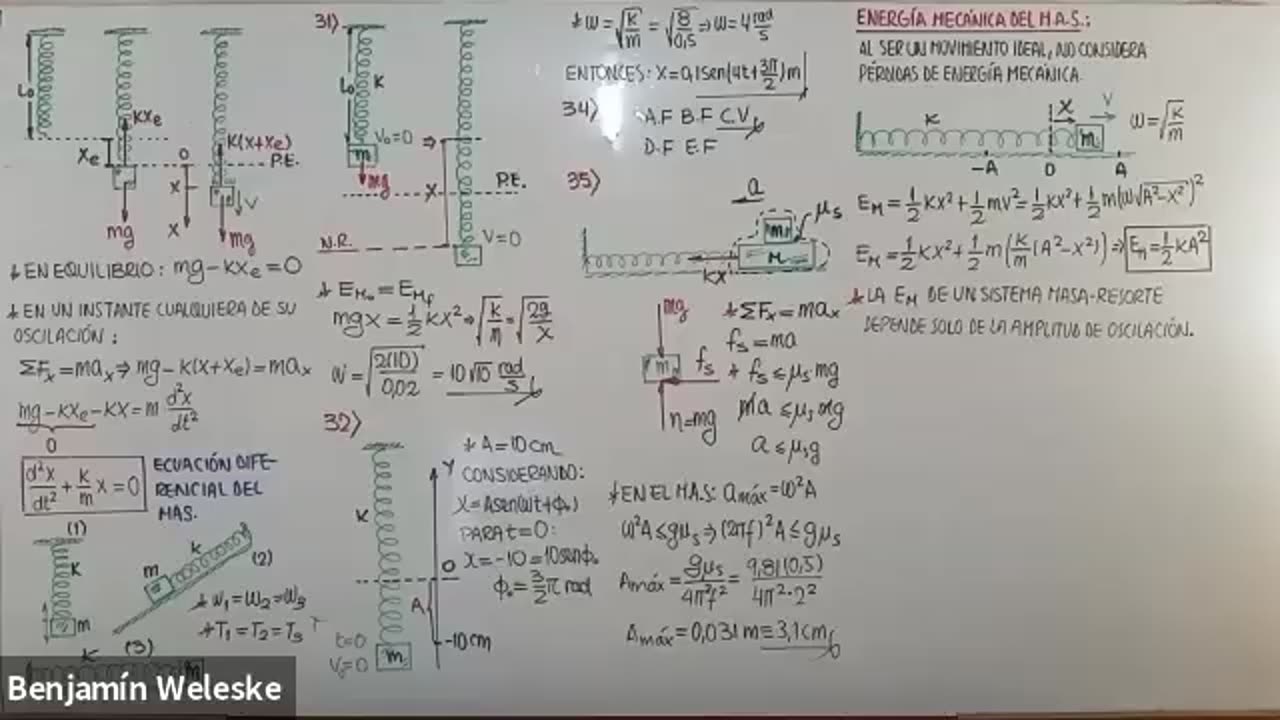 L₀
Xe
KXe
mg
O
X
X
K(X+Xe)
P.E.
V
mg
* EN EQUILIBRIO: mg-KXe=0
* EN UN INSTANTE CUALQUIERA DE SU
OSCILACIÓN:
ΣFx=max⇒mg-K(X+Xe)=max
mg-KXe-KX=m d²x/dt²
0
d²x/dt²+K/m X=0
ECUACIÓN DIFE-
RENCIAL DEL
MAS.
(1)
K
m
m
K
(2)
* W₁=W₂=W₃
* T₁=T₂=T₃
(3)
K
m
31)
L₀
K
V₀=0
m
mg
⇒
X
P.E.
N.R.
V=0
* EM₀=EMf
mgX=½KX²⇒√K/m=√2g/X
W=√2(10)/0,02 = 10√10 rad/s
32)
K
A
t=0
V₀=0
m
Y
O
-10cm
* A=10cm
CONSIDERANDO:
X=Asen(wt+ϕ₀)
PARA t=0:
X=-10=10senϕ₀
ϕ₀=3/2π rad
* W=√K/m=√8/0,5⇒W=4 rad/s
ENTONCES: X=0,1sen(4t+3π/2)m
34)
A.F B.F C.V
D.F E.F
35)
a
μs
m
M
KX
mg
m
fs
n=mg
* ΣFx=max
fs=ma
* fs≤μsmg
ma≤μsmg
a≤μsg
* EN EL MAS: amáx=W²A
W²A≤gμs⇒(2πf)²A≤gμs
Amáx=gμs/4π²f²=9,81(0,5)/4π²·2²
Amáx=0,031m≡3,1cm
ENERGÍA MECÁNICA DEL M.A.S.:
AL SER UN MOVIMIENTO IDEAL, NO CONSIDERA
PÉRDIDAS DE ENERGÍA MECÁNICA.
K
X
V
m
W=√K/m
-A
O
A
EM=½KX²+½mV²=½KX²+½m(W√A²-X²)²
EM=½KX²+½m(K/m(A²-X²))⇒EM=½KA²
* LA EM DE UN SISTEMA MASA-RESORTE
DEPENDE SOLO DE LA AMPLITUD DE OSCILACIÓN.
Benjamín Weleske